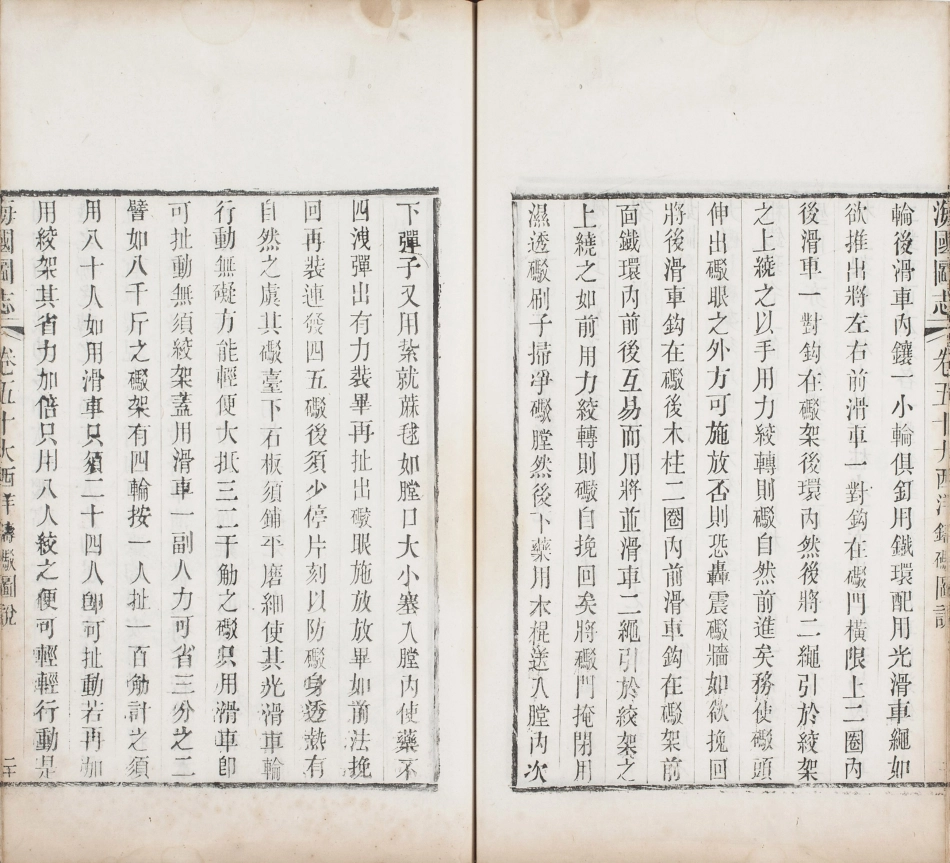 海國圖志
卷五十 大西洋鑄礮圖說
輪後滑車內鑲一小輪俱釘用鐵環配用光滑車繩如
欲推出將左右前滑車一對鈎在礮門橫限上二圈內
後滑車一對鈎在礮架後環內然後將二繩引於絞架
之上繞之以手用力絞轉則礮自然前進矣務使礮頭
伸出礮眼之外方可施放否則恐轟震礮牆如欲挽回
將後滑車鈎在礮後木柱二圈內前滑車鈎在礮架前
面鐵環內前後互易而用將並滑車二繩引於絞架之
上繞之如前用力絞轉則礮自挽回矣將礮門掩閉用
濕透礮刷子掃凈礮膛然後下藥用木棍送入膛內次
下彈子又用紮就蔴毬如膛口大小塞入膛內使藥不
四洩彈出有力裝畢再扯出礮眼施放放畢如前法挽
回再裝連發四五礮後須少停片刻以防礮身透熱有
自然之虞其礮臺下石板須鋪平磨細使其光滑車輪
行動無礙方能輕便大抵三二千觔之礮只用滑車卽
可扯動無須絞架蓋用滑車一副人力可省三分之二
譬如八千斤之礮架有四輪按一人扯一百觔計之須
用八十人如用滑車只須二十四人卽可扯動若再加
用絞架其省力加倍只用八人絞之便可輕輕行動是
海國圖志
卷五十 大西洋鑄礮圖說
二十